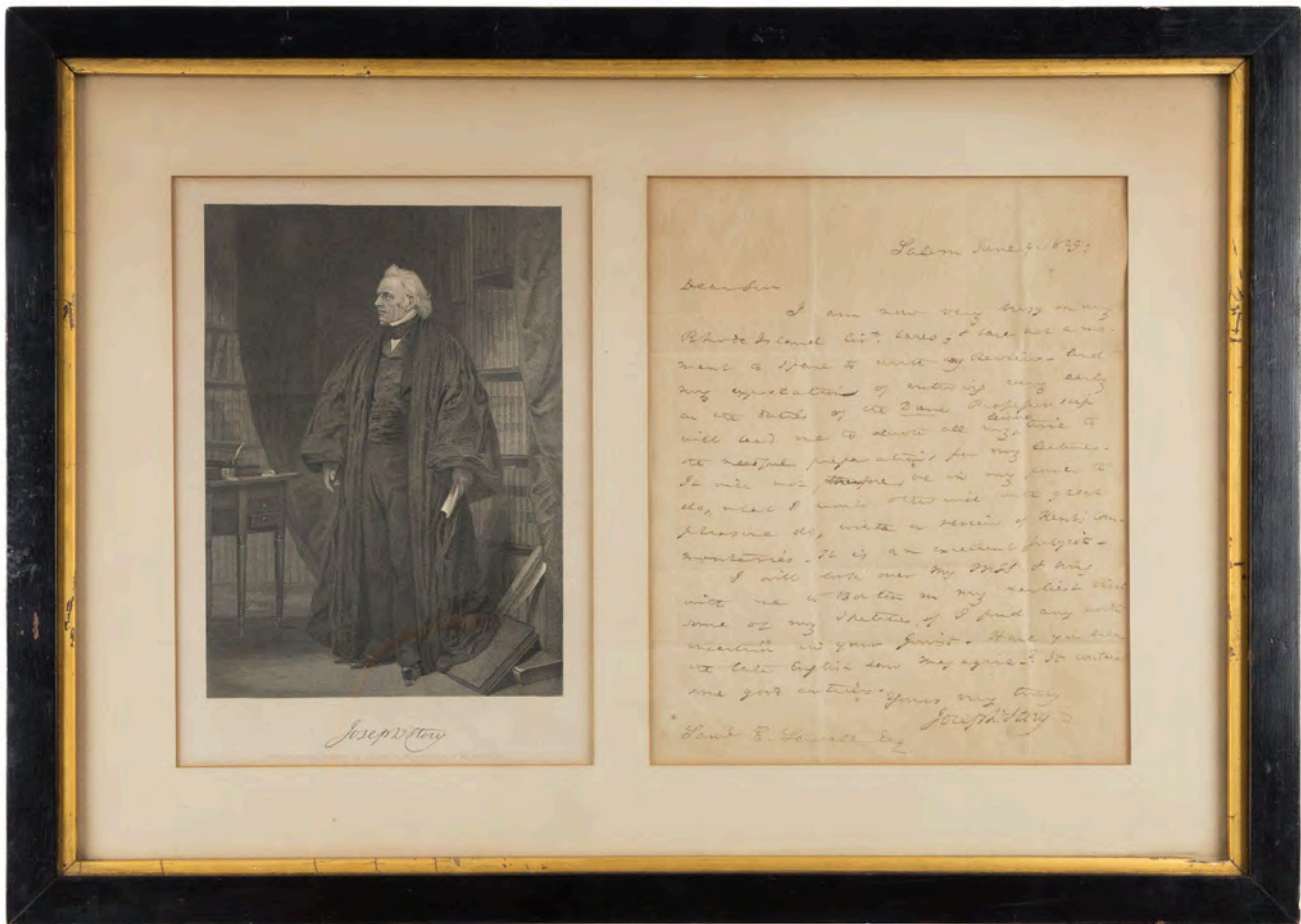 Joseph Story
Salem June 4. 1829.
Dear Sir
I am now very busy on my
Rhode Island Cir.t cases, & have not a mo-
ment to spare to write my Review. And
my expectations of entering very early
on the duties of the Dane Professorship
will lead me to devote all my leisure time to
the needful preparations for my lectures.
It will not therefore be in my power to
do, what I would otherwise with great
pleasure do, write a review of Kent's Com-
mentaries. It is an excellent subject.
I will look over my MSS & bring
with me to Boston on my earliest visit
some of my sketches, if I find any worth
insertion in your Jurist. Have you seen
the late English Law Magazine? It contains
some good articles. Yours very truly
Joseph Story
Saml E. Sewall Esq